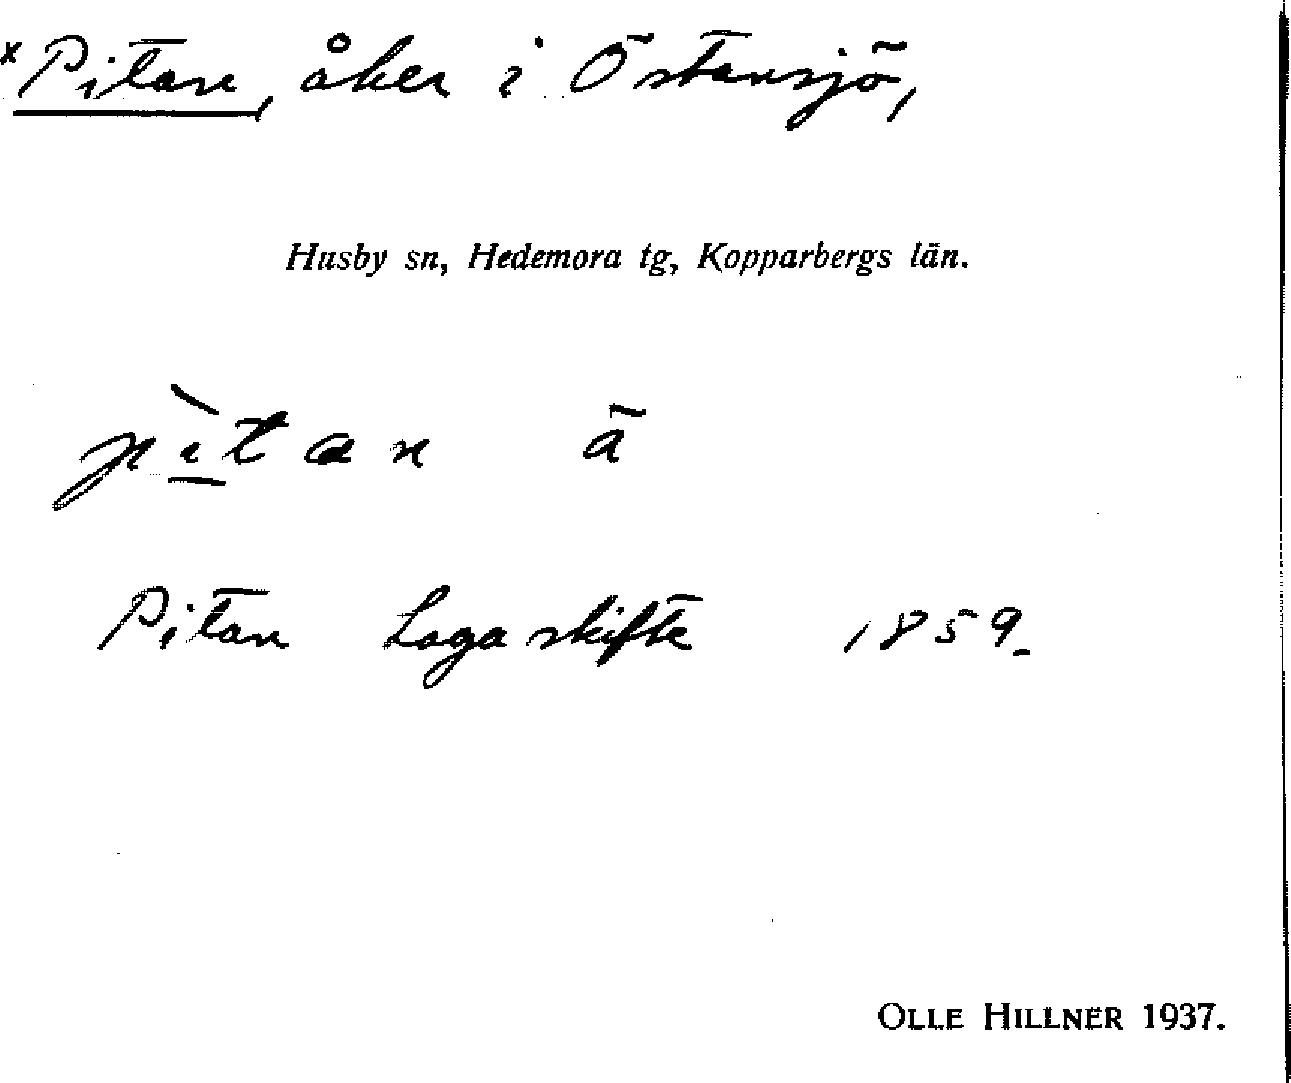 x Pitan, åker i Östansjö,
Husby sn, Hedemora tg, Kopparbergs län.
pìtan ā
Pitan Laga skifte 1859.
OLLE HILLNER 1937.